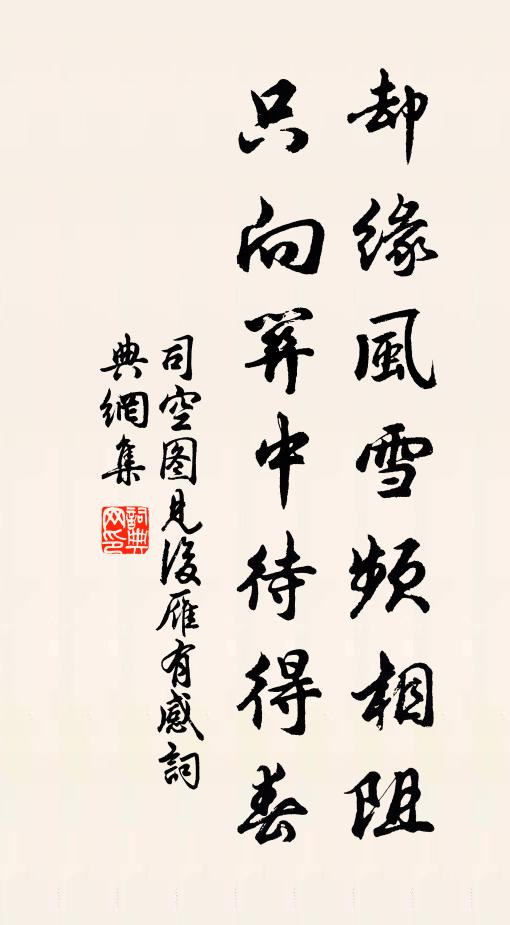 却緣風雪頻相阻
只向關中待得春
司空图見後雁有感詞
典網集
詞典
网印